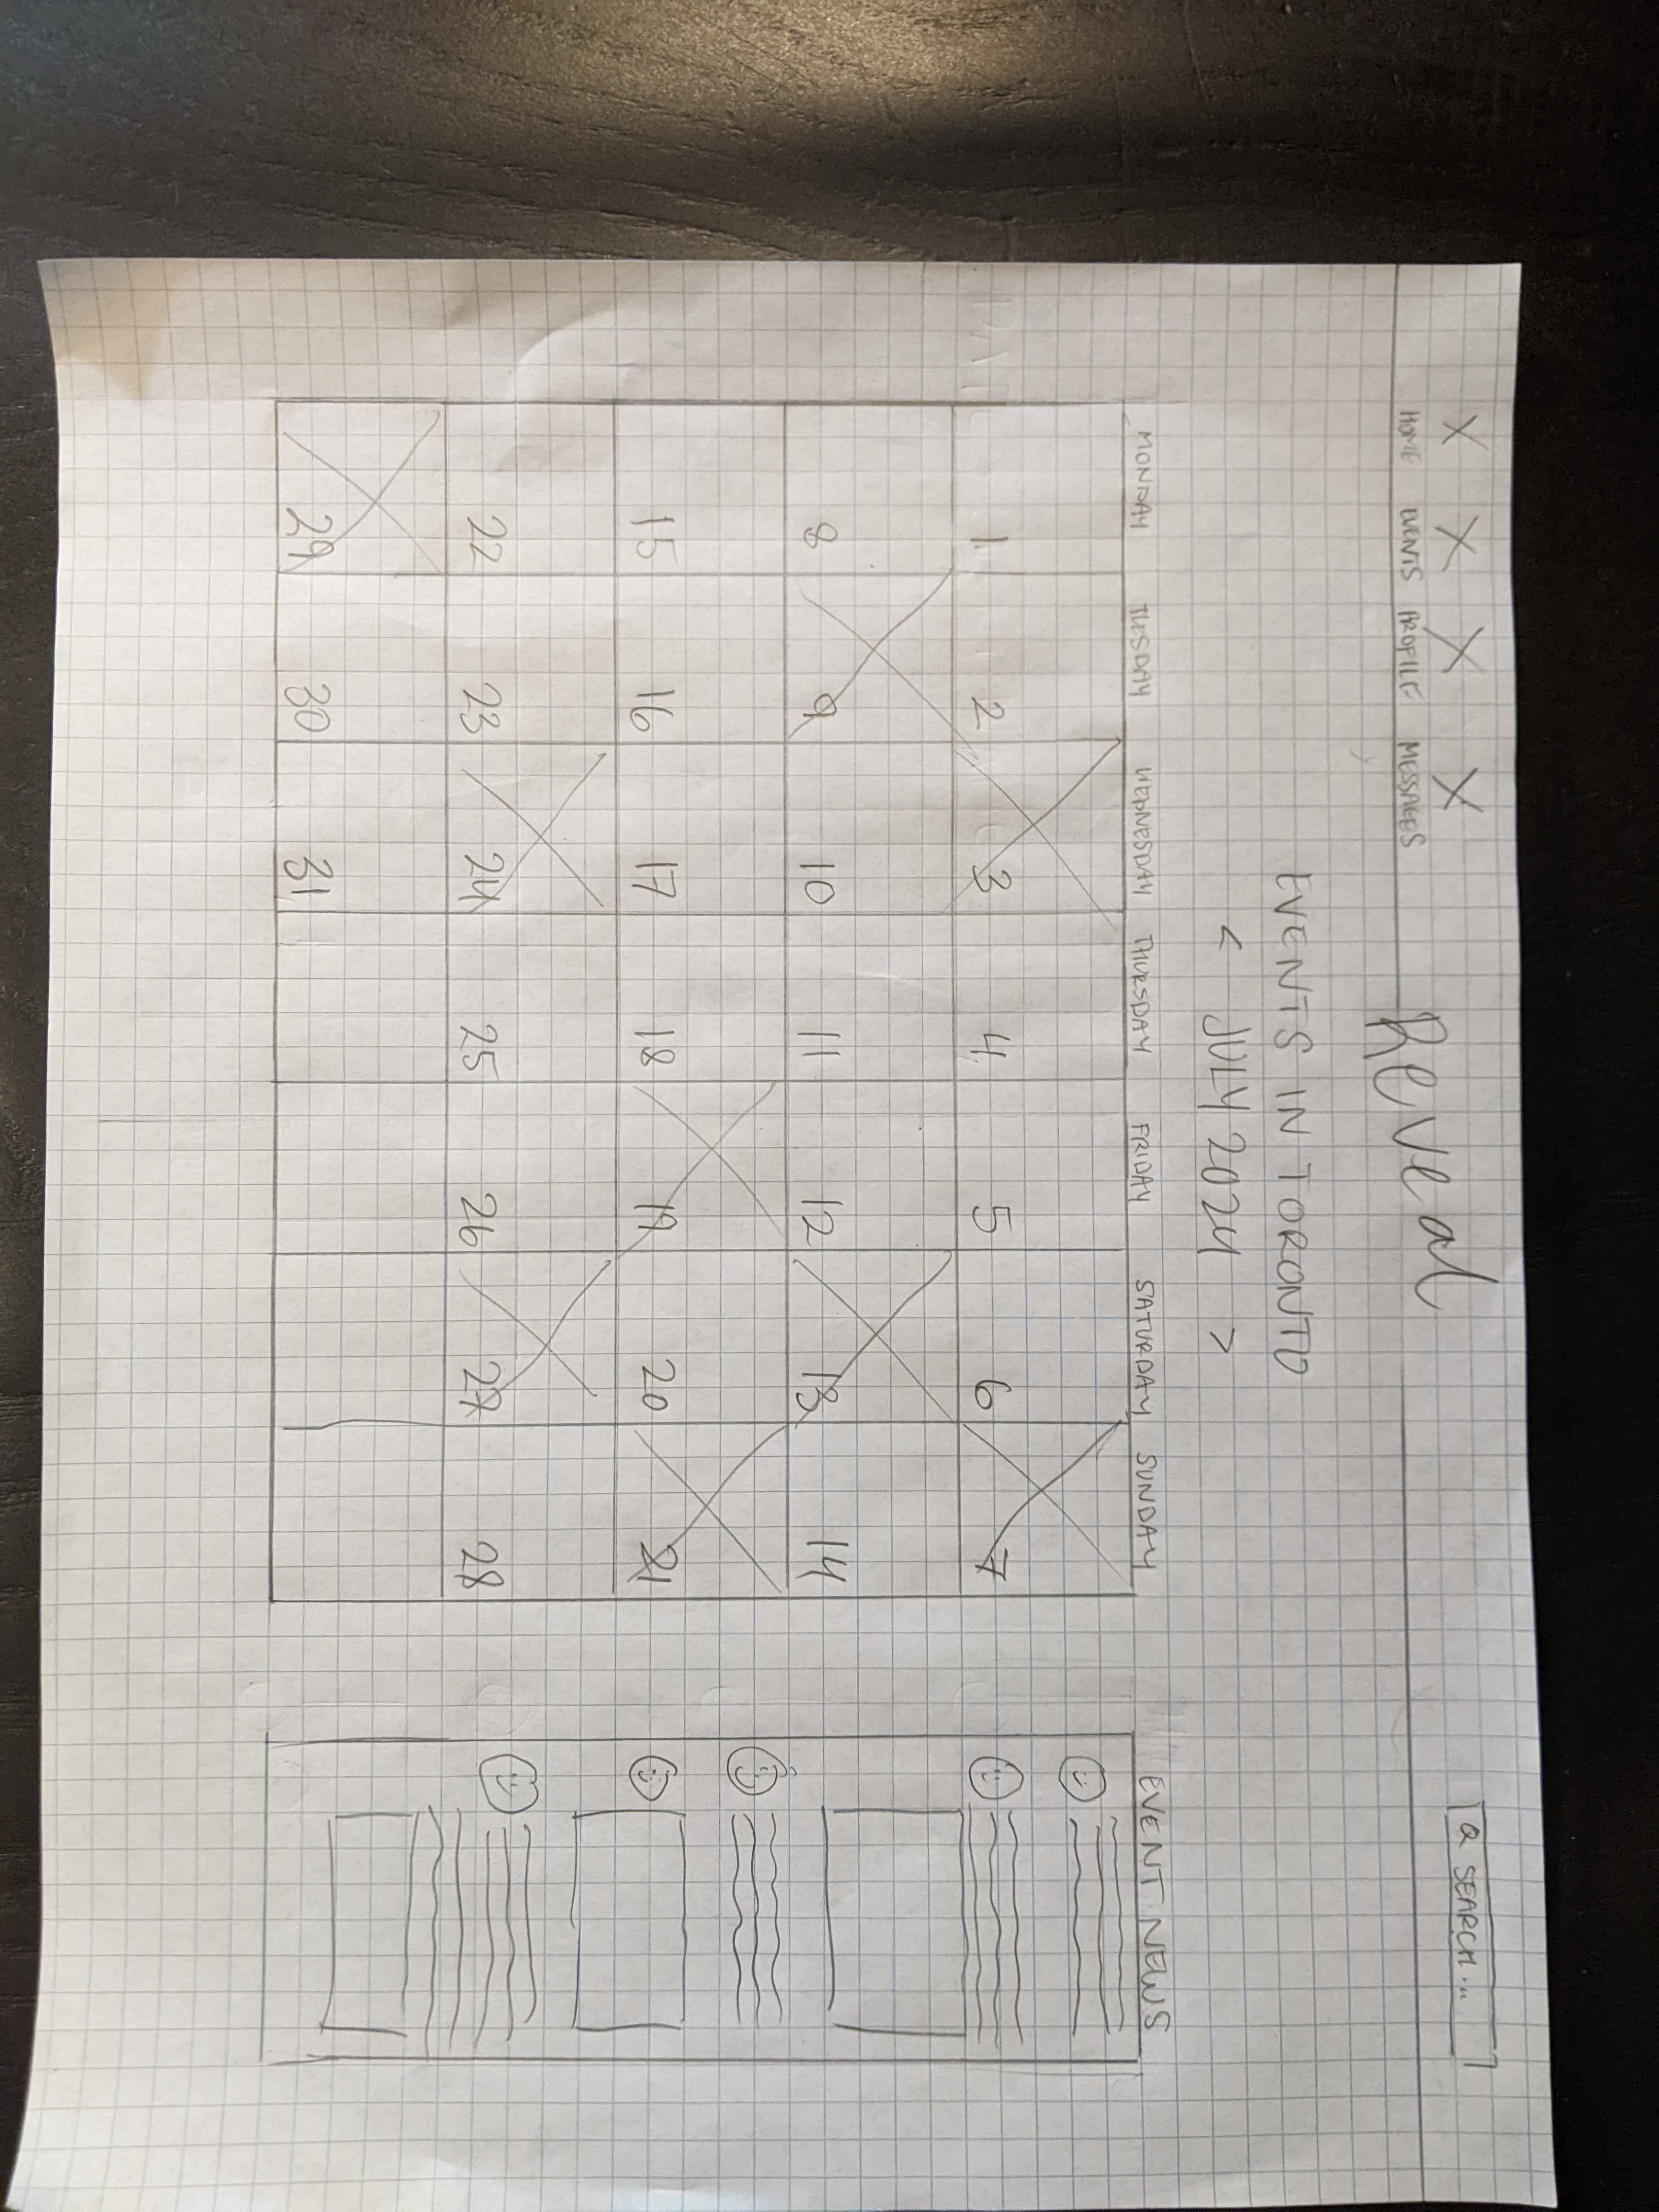 HOME EVENTS PROFILE MESSAGES
Reveal
Q SEARCH...
EVENTS IN TORONTO
< JULY 2024 >
MONDAY TUESDAY WEDNESDAY THURSDAY FRIDAY SATURDAY SUNDAY
1 2 3 4 5 6 7
8 9 10 11 12 13 14
15 16 17 18 19 20 21
22 23 24 25 26 27 28
29 30 31
EVENT NEWS